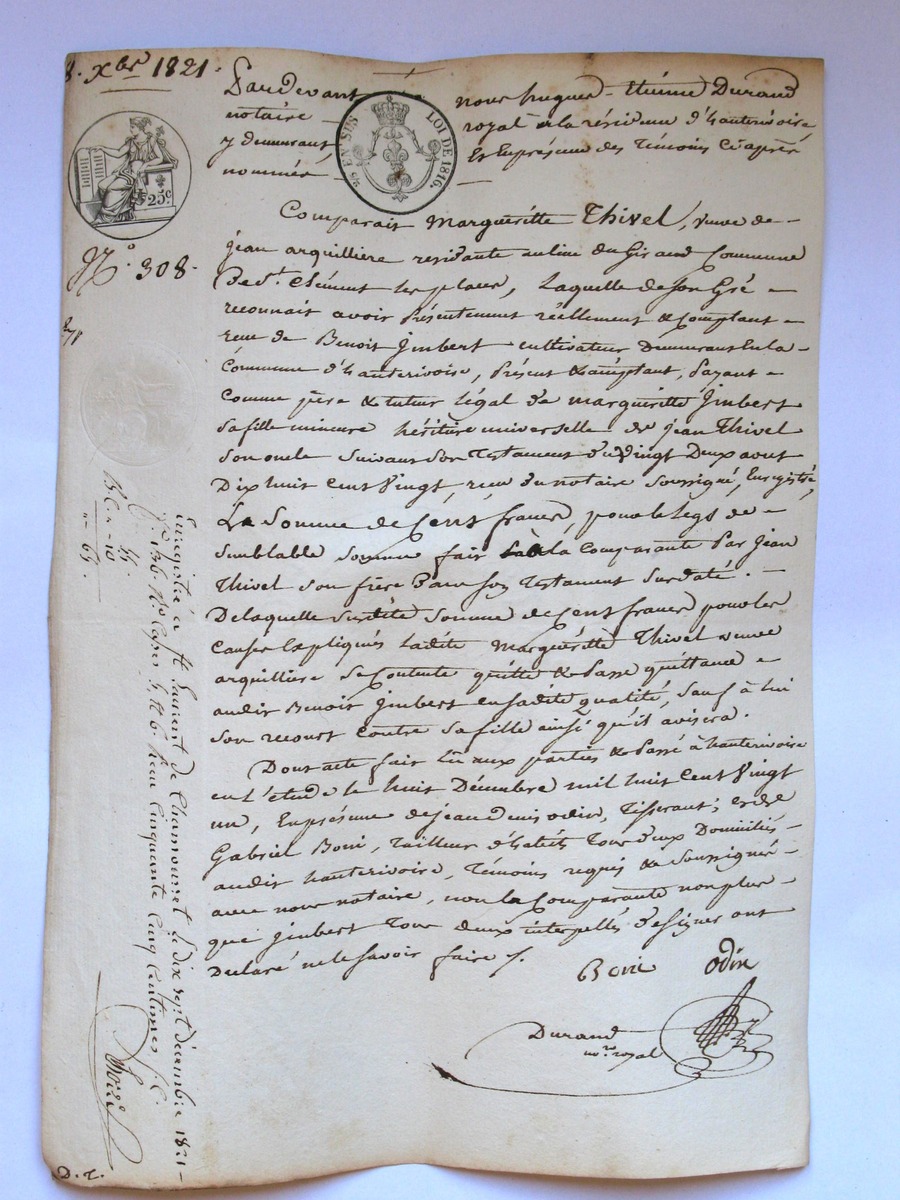 8. Xbre 1821.
Pardevant nous hugues-Etienne Durand
notaire royal à la résidence d'hauterivoire
y demeurant Et En présence des Témoins Ci après
nommés
LOI DE 1816.
25c
N.o 308.
Comparait Margueritte Thivel, veuve de
jean arquilliere residante au lieu du Giraud Commune
De St. Clément les places, Laquelle de son Gré
reconnait avoir Présentement réellement & Comptant
reçu de Benoit Jmbert cultivateur Demeurant En la
Commune d'hauterivoire, Présent & acceptant, Payant
Comme père & tuteur légal de margueritte Jmbert
sa fille mineure héritière universelle de jean Thivel
son oncle suivant son Testament du Vingt Deux aout
Dix huit Cent Vingt, reçu du notaire soussigné, Enregistré,
La Somme de Cent francs, pour le legs de
semblable somme fait à la Comparante Par jean
Thivel son frère Dans son Testament sus daté.
De laquelle susdite somme de Cent francs pour les
Causes Expliqués ladite Margueritte Thivel veuve
arquilliere se Contente quitte & Passe quittance
audit Benoit Jmbert en sadite qualité, sauf à lui
son recourt contre sa fille ainsi qu'il avisera.
Dont acte fait lu aux parties & Passé à hauterivoire
en l'étude le huit Décembre mil huit cent Vingt
un, En présence de jean denis odin, Tisserant; et de
Gabriel Boni, Tailleur d'habits Tous deux Domiciliés
audit hauterivoire, Témoins requis & Soussignés
avec nous notaire, non la Comparante non plus
que Jmbert Tous deux interpellés de signer ont
Déclaré ne le savoir faire /.
Boni odin
Durand
nore royal
Enregistré à St. Laurent de Chamousset le dix sept décembre 1821
fo 136 Ro Cases 5, et 6. reçu cinquante cinq centimes S.C.
55.
10
65.
D. T.